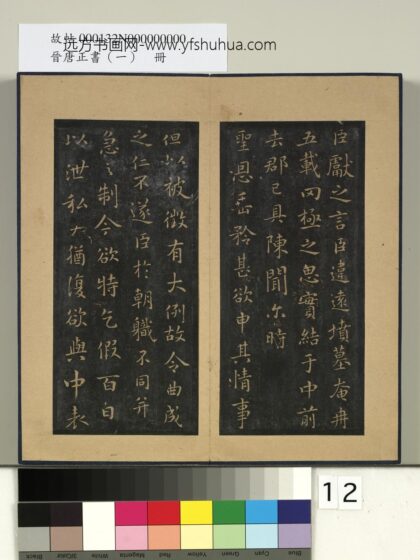 故帖 000132N000000000
远方书画网-www.yfshuhua.com
晉唐正書（一） 冊
臣獻之言臣違遠墳墓奄冉
五載罔極之思實結于中前
去郡已具陳聞尔時
聖恩垂矜甚欲申其情事
但以被徵有大例故令曲成
之仁不遂臣於朝職不同并
急之制今欲特乞假百日
以泄私大猶復欲與中表
12
Black 3/Color White Magenta Red Yellow Green Cyan Blue